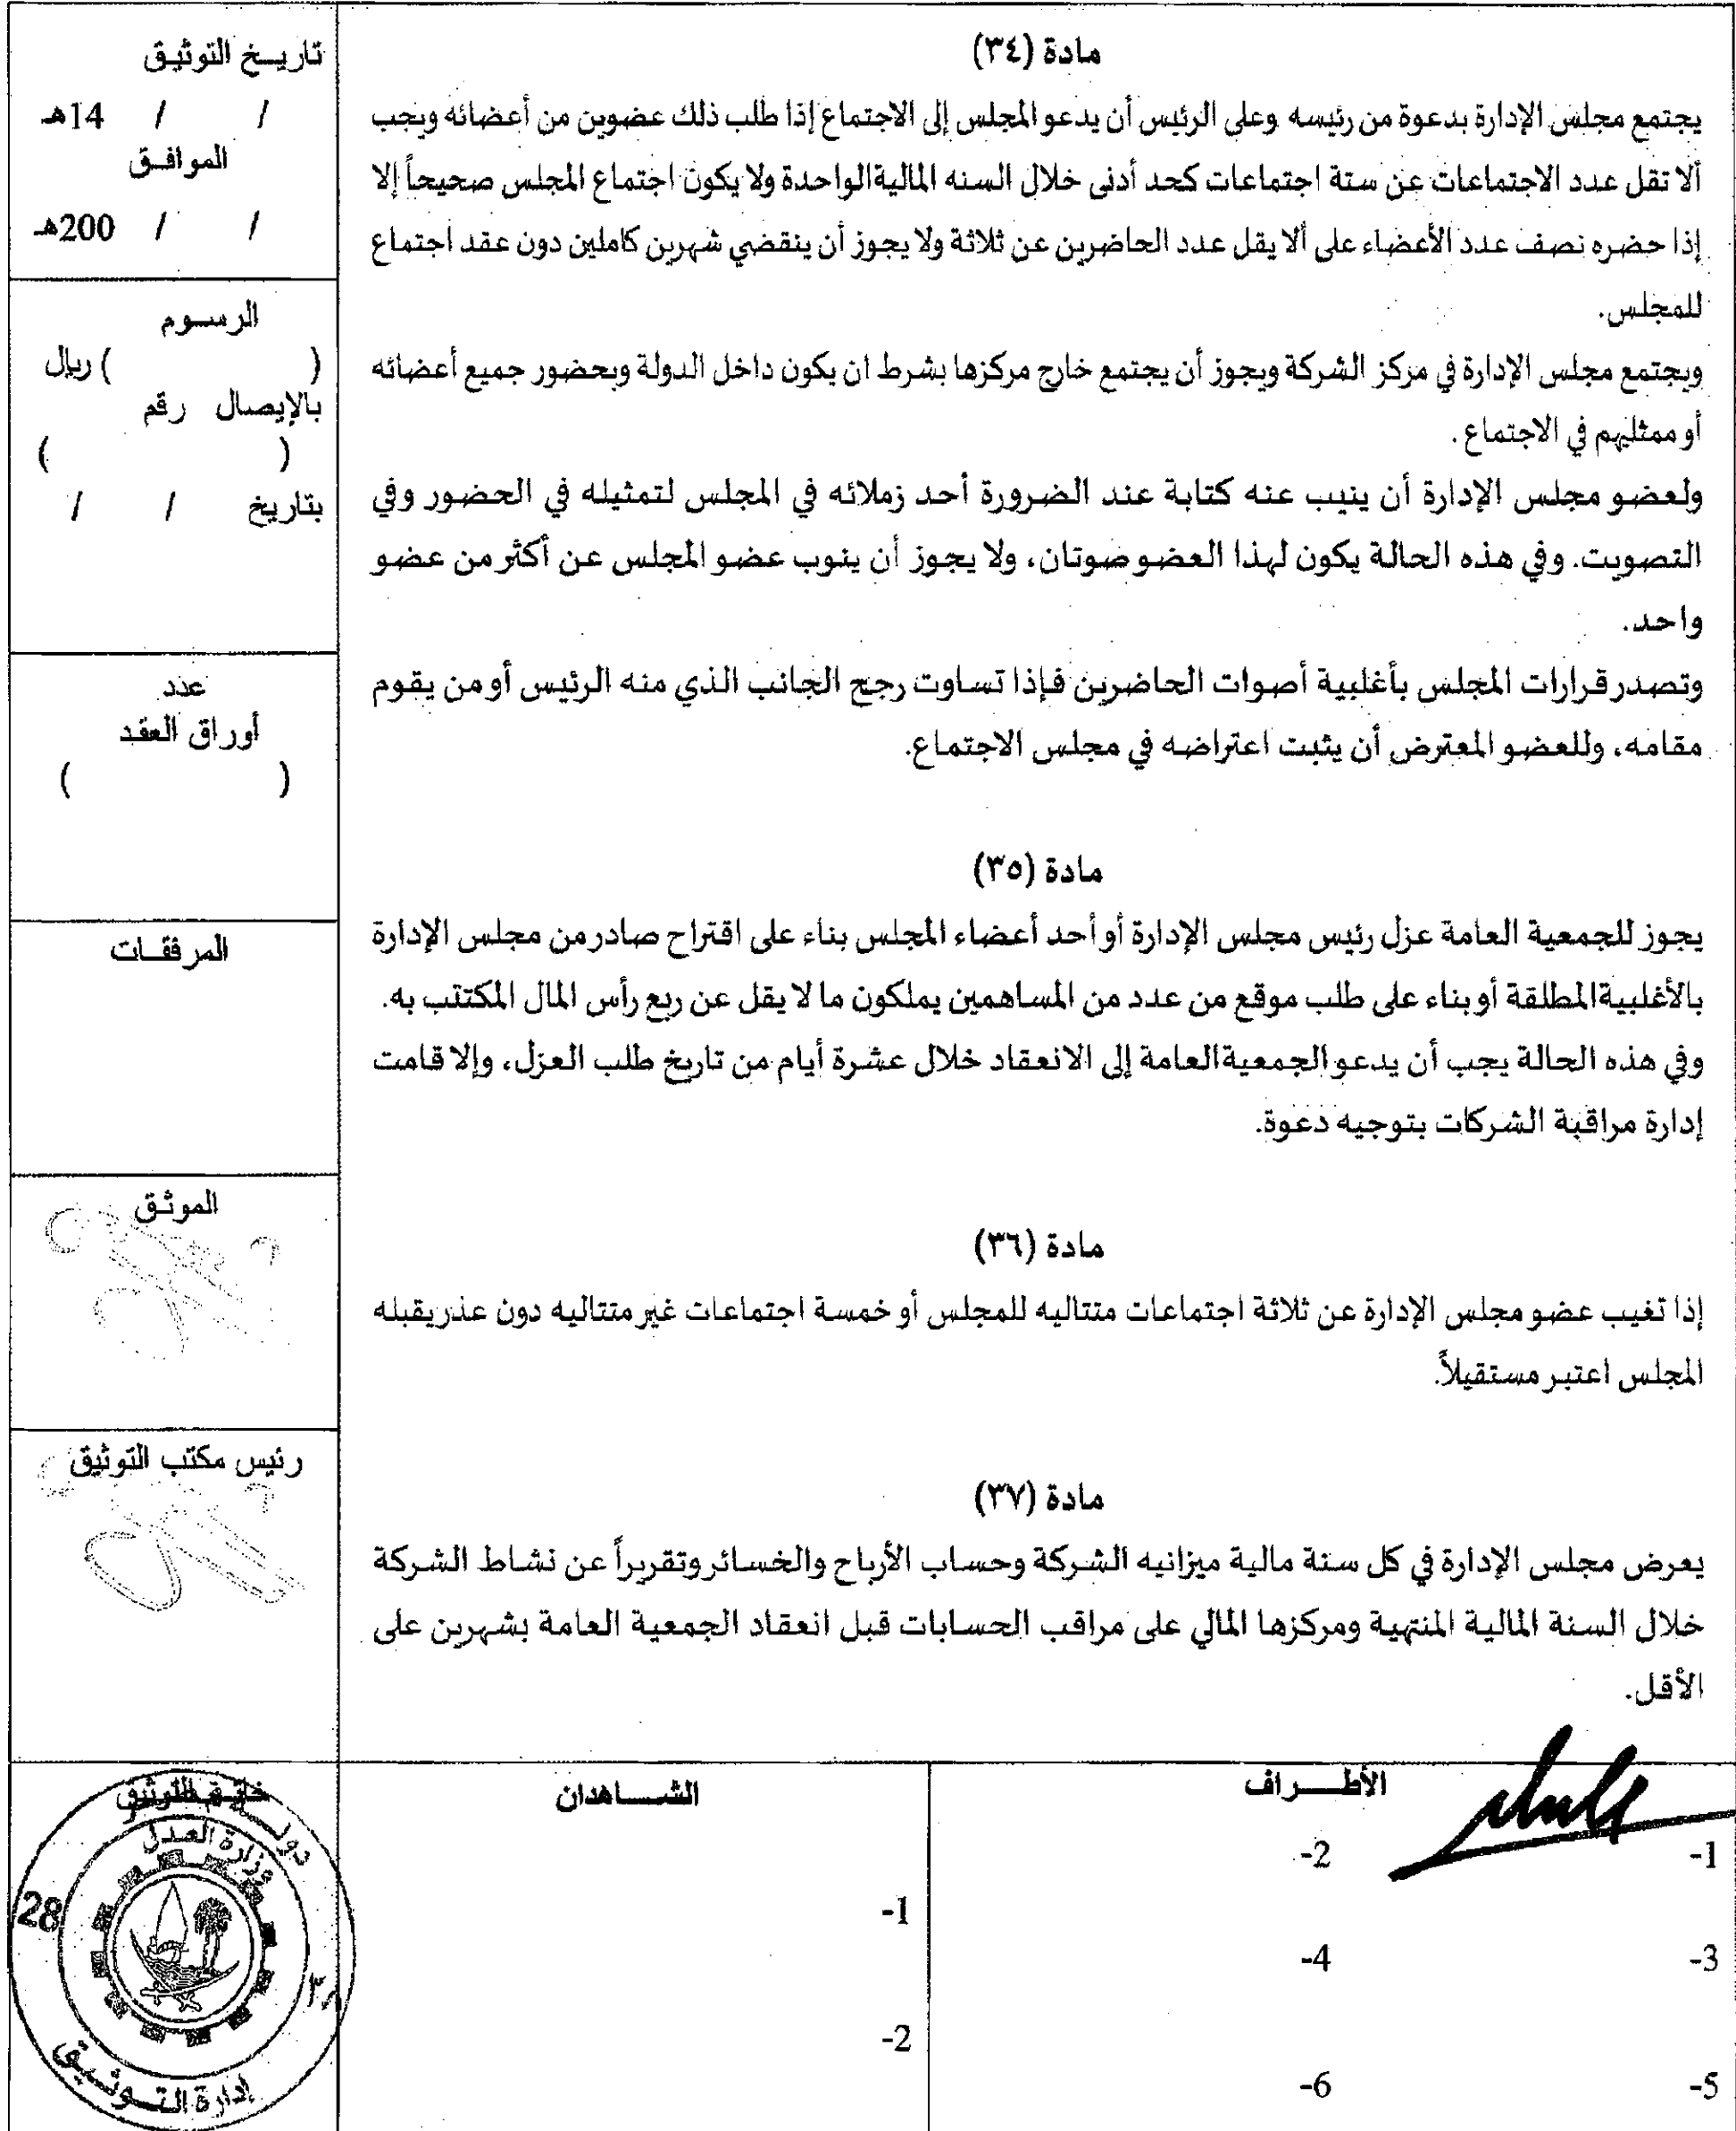 مادة (٣٤)
يجتمع مجلس الإدارة بدعوة من رئيسه وعلى الرئيس أن يدعو المجلس إلى الاجتماع إذا طلب ذلك عضوين من أعضائه ويجب
ألا تقل عدد الاجتماعات عن ستة اجتماعات كحد أدنى خلال السنه المالية الواحدة ولا يكون اجتماع المجلس صحيحاً إلا
إذا حضره نصف عدد الأعضاء على ألا يقل عدد الحاضرين عن ثلاثة ولا يجوز أن ينقضي شهرين كاملين دون عقد اجتماع
للمجلس.
ويجتمع مجلس الإدارة في مركز الشركة ويجوز أن يجتمع خارج مركزها بشرط ان يكون داخل الدولة وبحضور جميع أعضائه
أو ممثليهم في الاجتماع .
ولعضو مجلس الإدارة أن ينيب عنه كتابة عند الضرورة أحد زملائه في المجلس لتمثيله في الحضور وفي
التصويت. وفي هذه الحالة يكون لهذا العضو صوتان، ولا يجوز أن ينوب عضو المجلس عن أكثر من عضو
واحد.
وتصدر قرارات المجلس بأغلبية أصوات الحاضرين فإذا تساوت رجح الجانب الذي منه الرئيس أو من يقوم
مقامه، وللعضو المعترض أن يثبت اعتراضه في مجلس الاجتماع.
مادة (٣٥)
يجوز للجمعية العامة عزل رئيس مجلس الإدارة أو أحد أعضاء المجلس بناء على اقتراح صادر من مجلس الإدارة
بالأغلبية المطلقة أو بناء على طلب موقع من عدد من المساهمين يملكون ما لا يقل عن ربع رأس المال المكتتب به.
وفي هذه الحالة يجب أن يدعو الجمعية العامة إلى الانعقاد خلال عشرة أيام من تاريخ طلب العزل، وإلا قامت
إدارة مراقبة الشركات بتوجيه دعوة.
مادة (٣٦)
إذا تغيب عضو مجلس الإدارة عن ثلاثة اجتماعات متتاليه للمجلس أو خمسة اجتماعات غير متتاليه دون عذر يقبله
المجلس اعتبر مستقيلاً.
مادة (٣٧)
يعرض مجلس الإدارة في كل سنة مالية ميزانيه الشركة وحساب الأرباح والخسائر وتقريراً عن نشاط الشركة
خلال السنة المالية المنتهية ومركزها المالي على مراقب الحسابات قبل انعقاد الجمعية العامة بشهرين على
الأقل.
تاريخ التوثيق
/ / 14هـ
الموافق
/ / 200هـ
الرسوم
( ) ريال
بالإيصال رقم
( )
بتاريخ / /
عدد
أوراق العقد
( )
المرفقات
الموثق
رئيس مكتب التوثيق
الأطراف
1- 2-
3- 4-
5- 6-
الشاهدان
1-
2-
خاتم التوثيق
دولة قطر
وزارة العدل
28
إدارة التوثيق